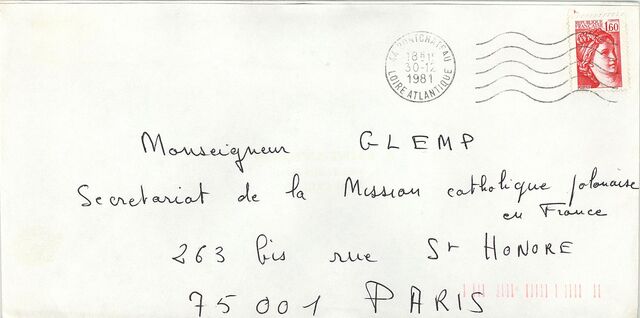 44 PONTCHATEAU
18H
30-12
1981
LOIRE ATLANTIQUE
REPUBLIQUE FRANCAISE
1,60
Monseigneur GLEMP
Secretariat de la Mission catholique polonaise
en France
263 bis rue St HONORE
75001 PARIS